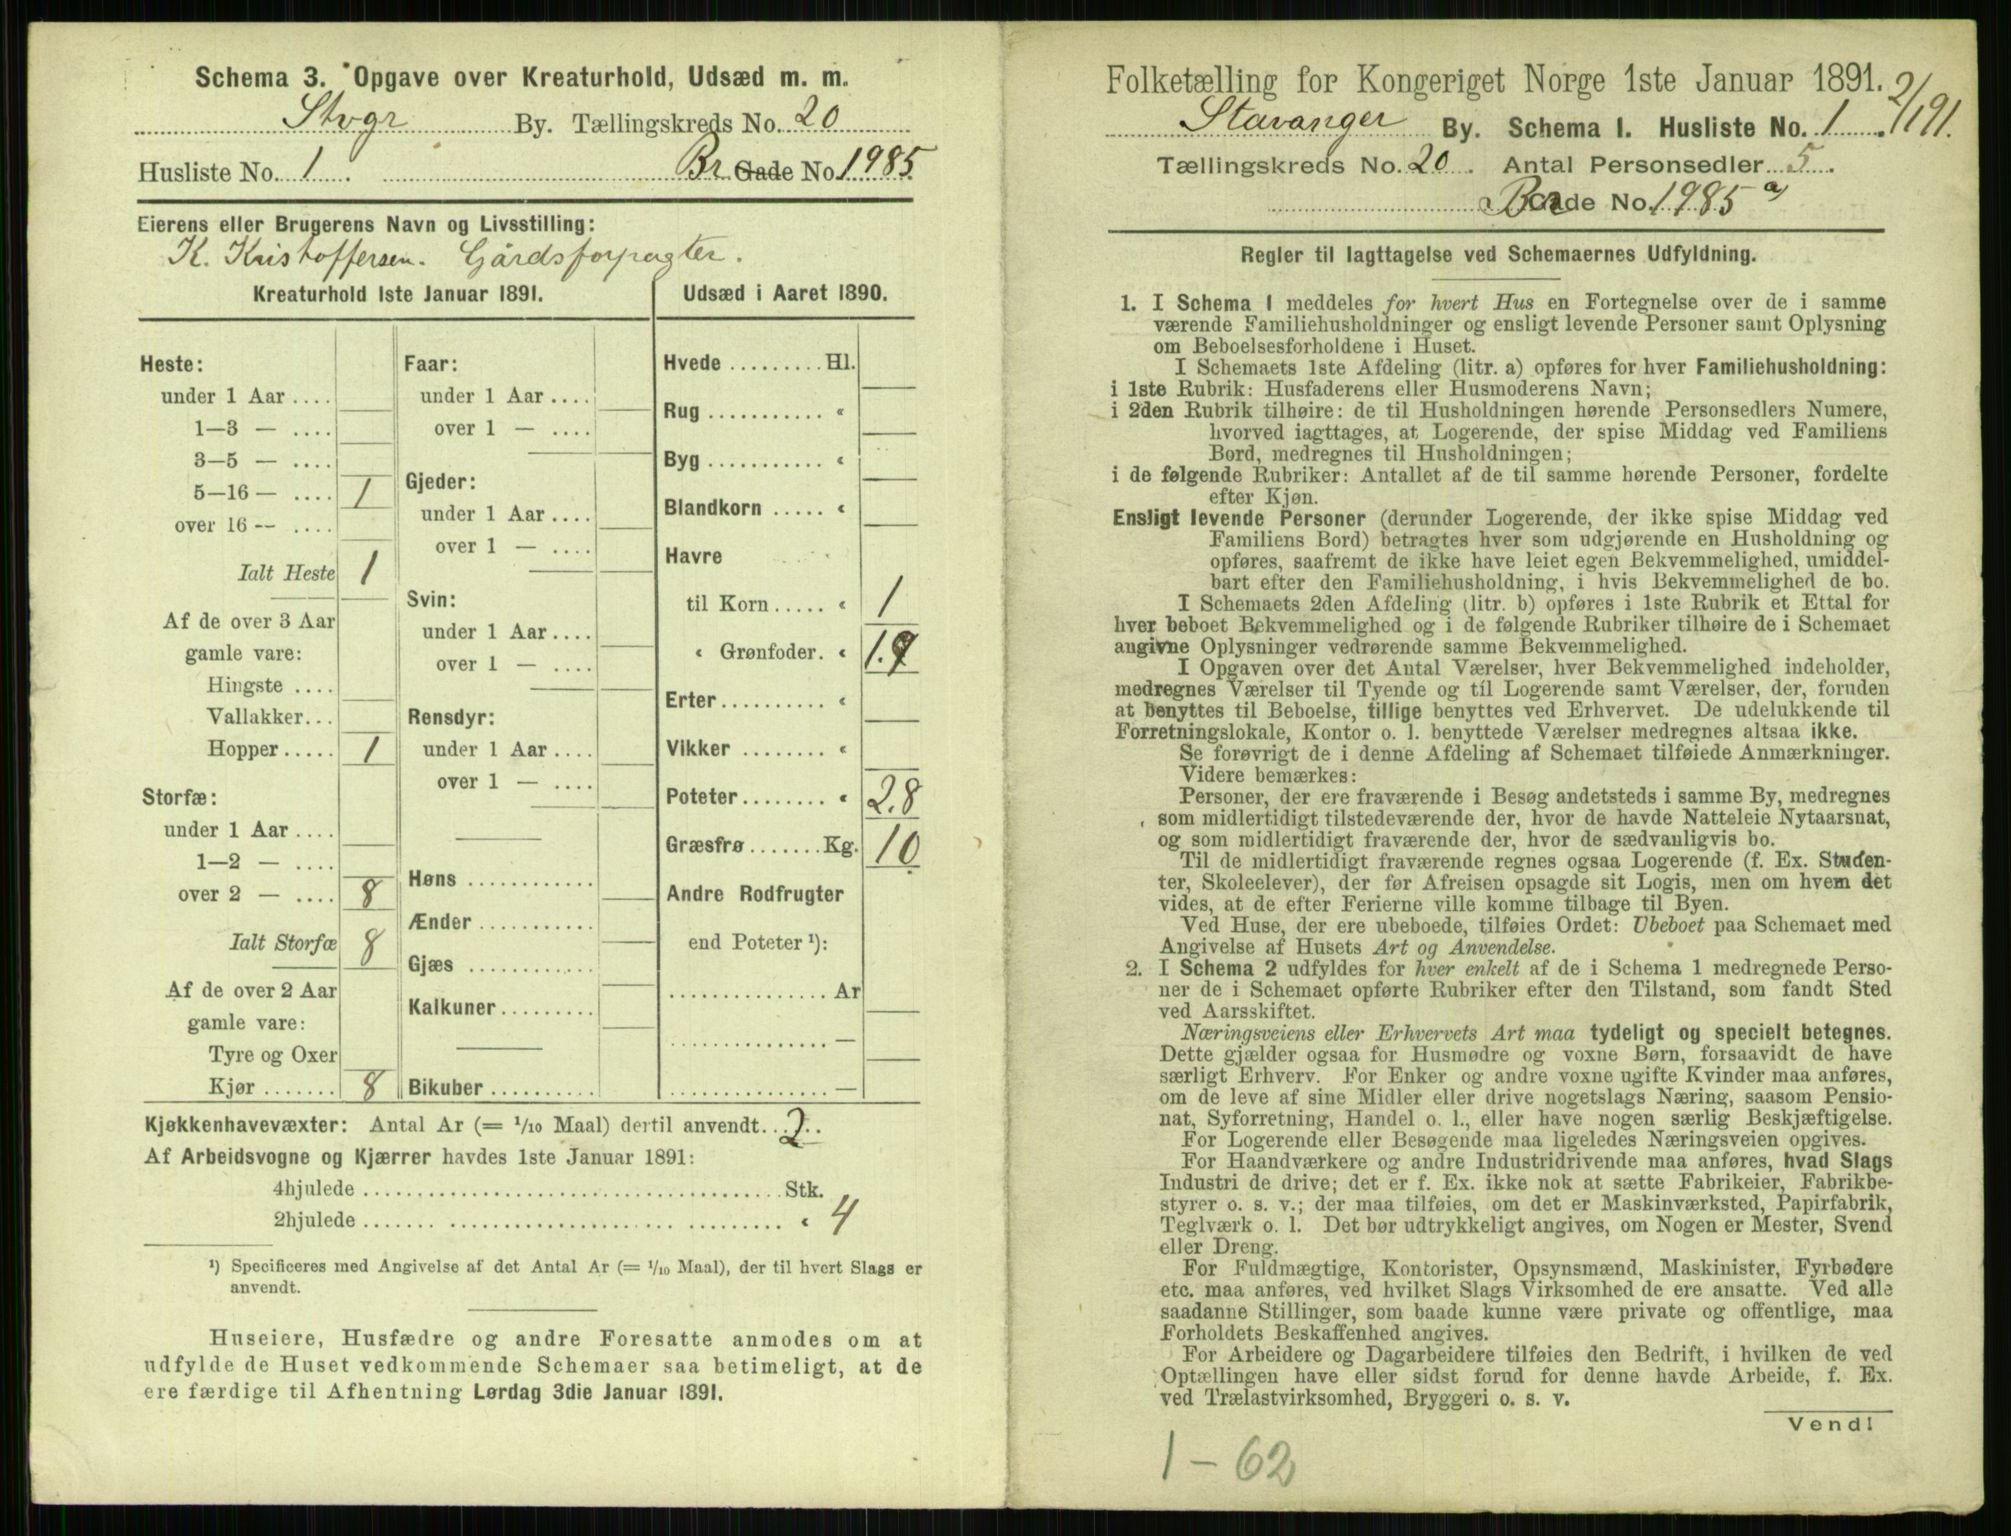 Schema 3. Opgave over Kreaturhold, Udsæd m. m.
Stvgr By. Tællingskreds No. 20
Husliste No. 1. Br. Gade No. 1985
Eierens eller Brugerens Navn og Livsstilling:
K. Kristoffersen. Gårdsforpagter.
Kreaturhold 1ste Januar 1891.
Heste:
under 1 Aar ....
1—3 — ....
3—5 — ....
5—16 — .... 1
over 16 — ....
Ialt Heste 1
Af de over 3 Aar
gamle vare:
Hingste ....
Vallakker...
Hopper ..... 1
Storfæ:
under 1 Aar ....
1—2 — ....
over 2 — .... 8
Ialt Storfæ 8
Af de over 2 Aar
gamle vare:
Tyre og Oxer
Kjør ....... 8
Faar:
under 1 Aar ....
over 1 — ....
Gjeder:
under 1 Aar ....
over 1 — ....
Svin:
under 1 Aar ....
over 1 — ....
Rensdyr:
under 1 Aar ....
over 1 — ....
Høns ............
Ænder ...........
Gjæs ............
Kalkuner .........
Bikuber ..........
Udsæd i Aaret 1890.
Hvede ......... Hl.
Rug ........... «
Byg ........... «
Blandkorn ..... «
Havre
til Korn ..... « 1
« Grønfoder. «
Erter .......... «
Vikker ........ «
Poteter ........ « 2.8
Græsfrø ....... Kg. 10
Andre Rodfrugter
end Poteter ¹):
............... Ar
............... —
............... —
Kjøkkenhavevæxter: Antal Ar (= 1/10 Maal) dertil anvendt. 2
Af Arbeidsvogne og Kjærrer havdes 1ste Januar 1891:
4hjulede ........................................ Stk.
2hjulede ........................................ « 4
¹) Specificeres med Angivelse af det Antal Ar (= 1/10 Maal), der til hvert Slags er
anvendt.
Huseiere, Husfædre og andre Foresatte anmodes om at
udfylde de Huset vedkommende Schemaer saa betimeligt, at de
ere færdige til Afhentning Lørdag 3die Januar 1891.
Folketælling for Kongeriget Norge 1ste Januar 1891.
2/1 91.
Stavanger By. Schema I. Husliste No. 1.
Tællingskreds No. 20. Antal Personsedler 5.
Br Gade No. 1985 a)
Regler til Iagttagelse ved Schemaernes Udfyldning.
1. I Schema 1 meddeles for hvert Hus en Fortegnelse over de i samme
værende Familiehusholdninger og ensligt levende Personer samt Oplysning
om Beboelsesforholdene i Huset.
I Schemaets 1ste Afdeling (litr. a) opføres for hver Familiehusholdning:
i 1ste Rubrik: Husfaderens eller Husmoderens Navn;
i 2den Rubrik tilhøire: de til Husholdningen hørende Personsedlers Numere,
hvorved iagttages, at Logerende, der spise Middag ved Familiens
Bord, medregnes til Husholdningen;
i de følgende Rubriker: Antallet af de til samme hørende Personer, fordelte
efter Kjøn.
Ensligt levende Personer (derunder Logerende, der ikke spise Middag ved
Familiens Bord) betragtes hver som udgjørende en Husholdning og
opføres, saafremt de ikke have leiet egen Bekvemmelighed, umiddel-
bart efter den Familiehusholdning, i hvis Bekvemmelighed de bo.
I Schemaets 2den Afdeling (litr. b) opføres i 1ste Rubrik et Ettal for
hver beboet Bekvemmelighed og i de følgende Rubriker tilhøire de i Schemaet
angivne Oplysninger vedrørende samme Bekvemmelighed.
I Opgaven over det Antal Værelser, hver Bekvemmelighed indeholder,
medregnes Værelser til Tyende og til Logerende samt Værelser, der, foruden
at benyttes til Beboelse, tillige benyttes ved Erhvervet. De udelukkende til
Forretningslokale, Kontor o. l. benyttede Værelser medregnes altsaa ikke.
Se forøvrigt de i denne Afdeling af Schemaet tilføiede Anmærkninger.
Videre bemærkes:
Personer, der ere fraværende i Besøg andetsteds i samme By, medregnes
som midlertidigt tilstedeværende der, hvor de havde Natteleie Nytaarsnat,
og som midlertidigt fraværende der, hvor de sædvanligvis bo.
Til de midlertidigt fraværende regnes ogsaa Logerende (f. Ex. Studen-
ter, Skoleelever), der før Afreisen opsagde sit Logis, men om hvem det
vides, at de efter Ferierne ville komme tilbage til Byen.
Ved Huse, der ere ubeboede, tilføies Ordet: Ubeboet paa Schemaet med
Angivelse af Husets Art og Anvendelse.
2. I Schema 2 udfyldes for hver enkelt af de i Schema 1 medregnede Perso-
ner de i Schemaet opførte Rubriker efter den Tilstand, som fandt Sted
ved Aarsskiftet.
Næringsveiens eller Erhvervets Art maa tydeligt og specielt betegnes.
Dette gjælder ogsaa for Husmødre og voxne Børn, forsaavidt de have
særligt Erhverv. For Enker og andre voxne ugifte Kvinder maa anføres,
om de leve af sine Midler eller drive nogetslags Næring, saasom Pensio-
nat, Syforretning, Handel o. l., eller have nogen særlig Beskjæftigelse.
For Logerende eller Besøgende maa ligeledes Næringsveien opgives.
For Haandværkere og andre Industridrivende maa anføres, hvad Slags
Industri de drive; det er f. Ex. ikke nok at sætte Fabrikeier, Fabrikbe-
styrer o. s. v.; der maa tilføies, om det er Maskinværksted, Papirfabrik,
Teglværk o. l. Det bør udtrykkeligt angives, om Nogen er Mester, Svend
eller Dreng.
For Fuldmægtige, Kontorister, Opsynsmænd, Maskinister, Fyrbødere
etc. maa anføres, ved hvilket Slags Virksomhed de ere ansatte. Ved alle
saadanne Stillinger, som baade kunne være private og offentlige, maa
Forholdets Beskaffenhed angives.
For Arbeidere og Dagarbeidere tilføies den Bedrift, i hvilken de ved
Optællingen have eller sidst forud for denne havde Arbeide, f. Ex.
ved Trælastvirksomhed, Bryggeri o. s. v.
Vend!
1 - 62